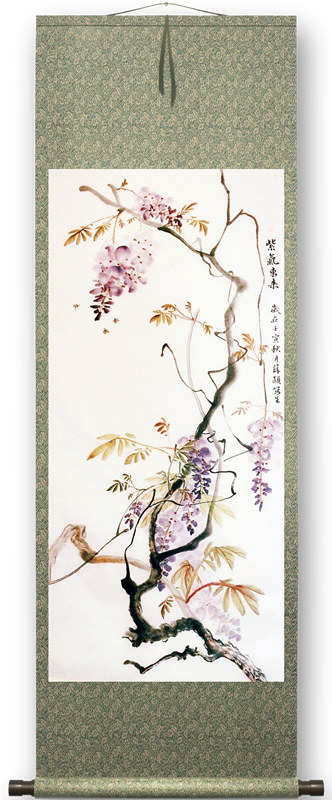 紫氣東来
歲在壬寅秋月薛穎寫生